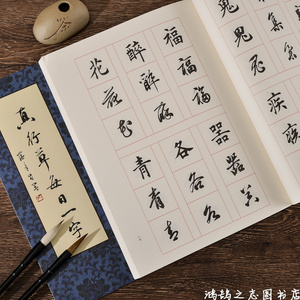 茶
真行草每日一字
福福福
醉醉醉
花花花
器器器
各各各
青青青
集集
疾疾
鸿鹄之志图书店